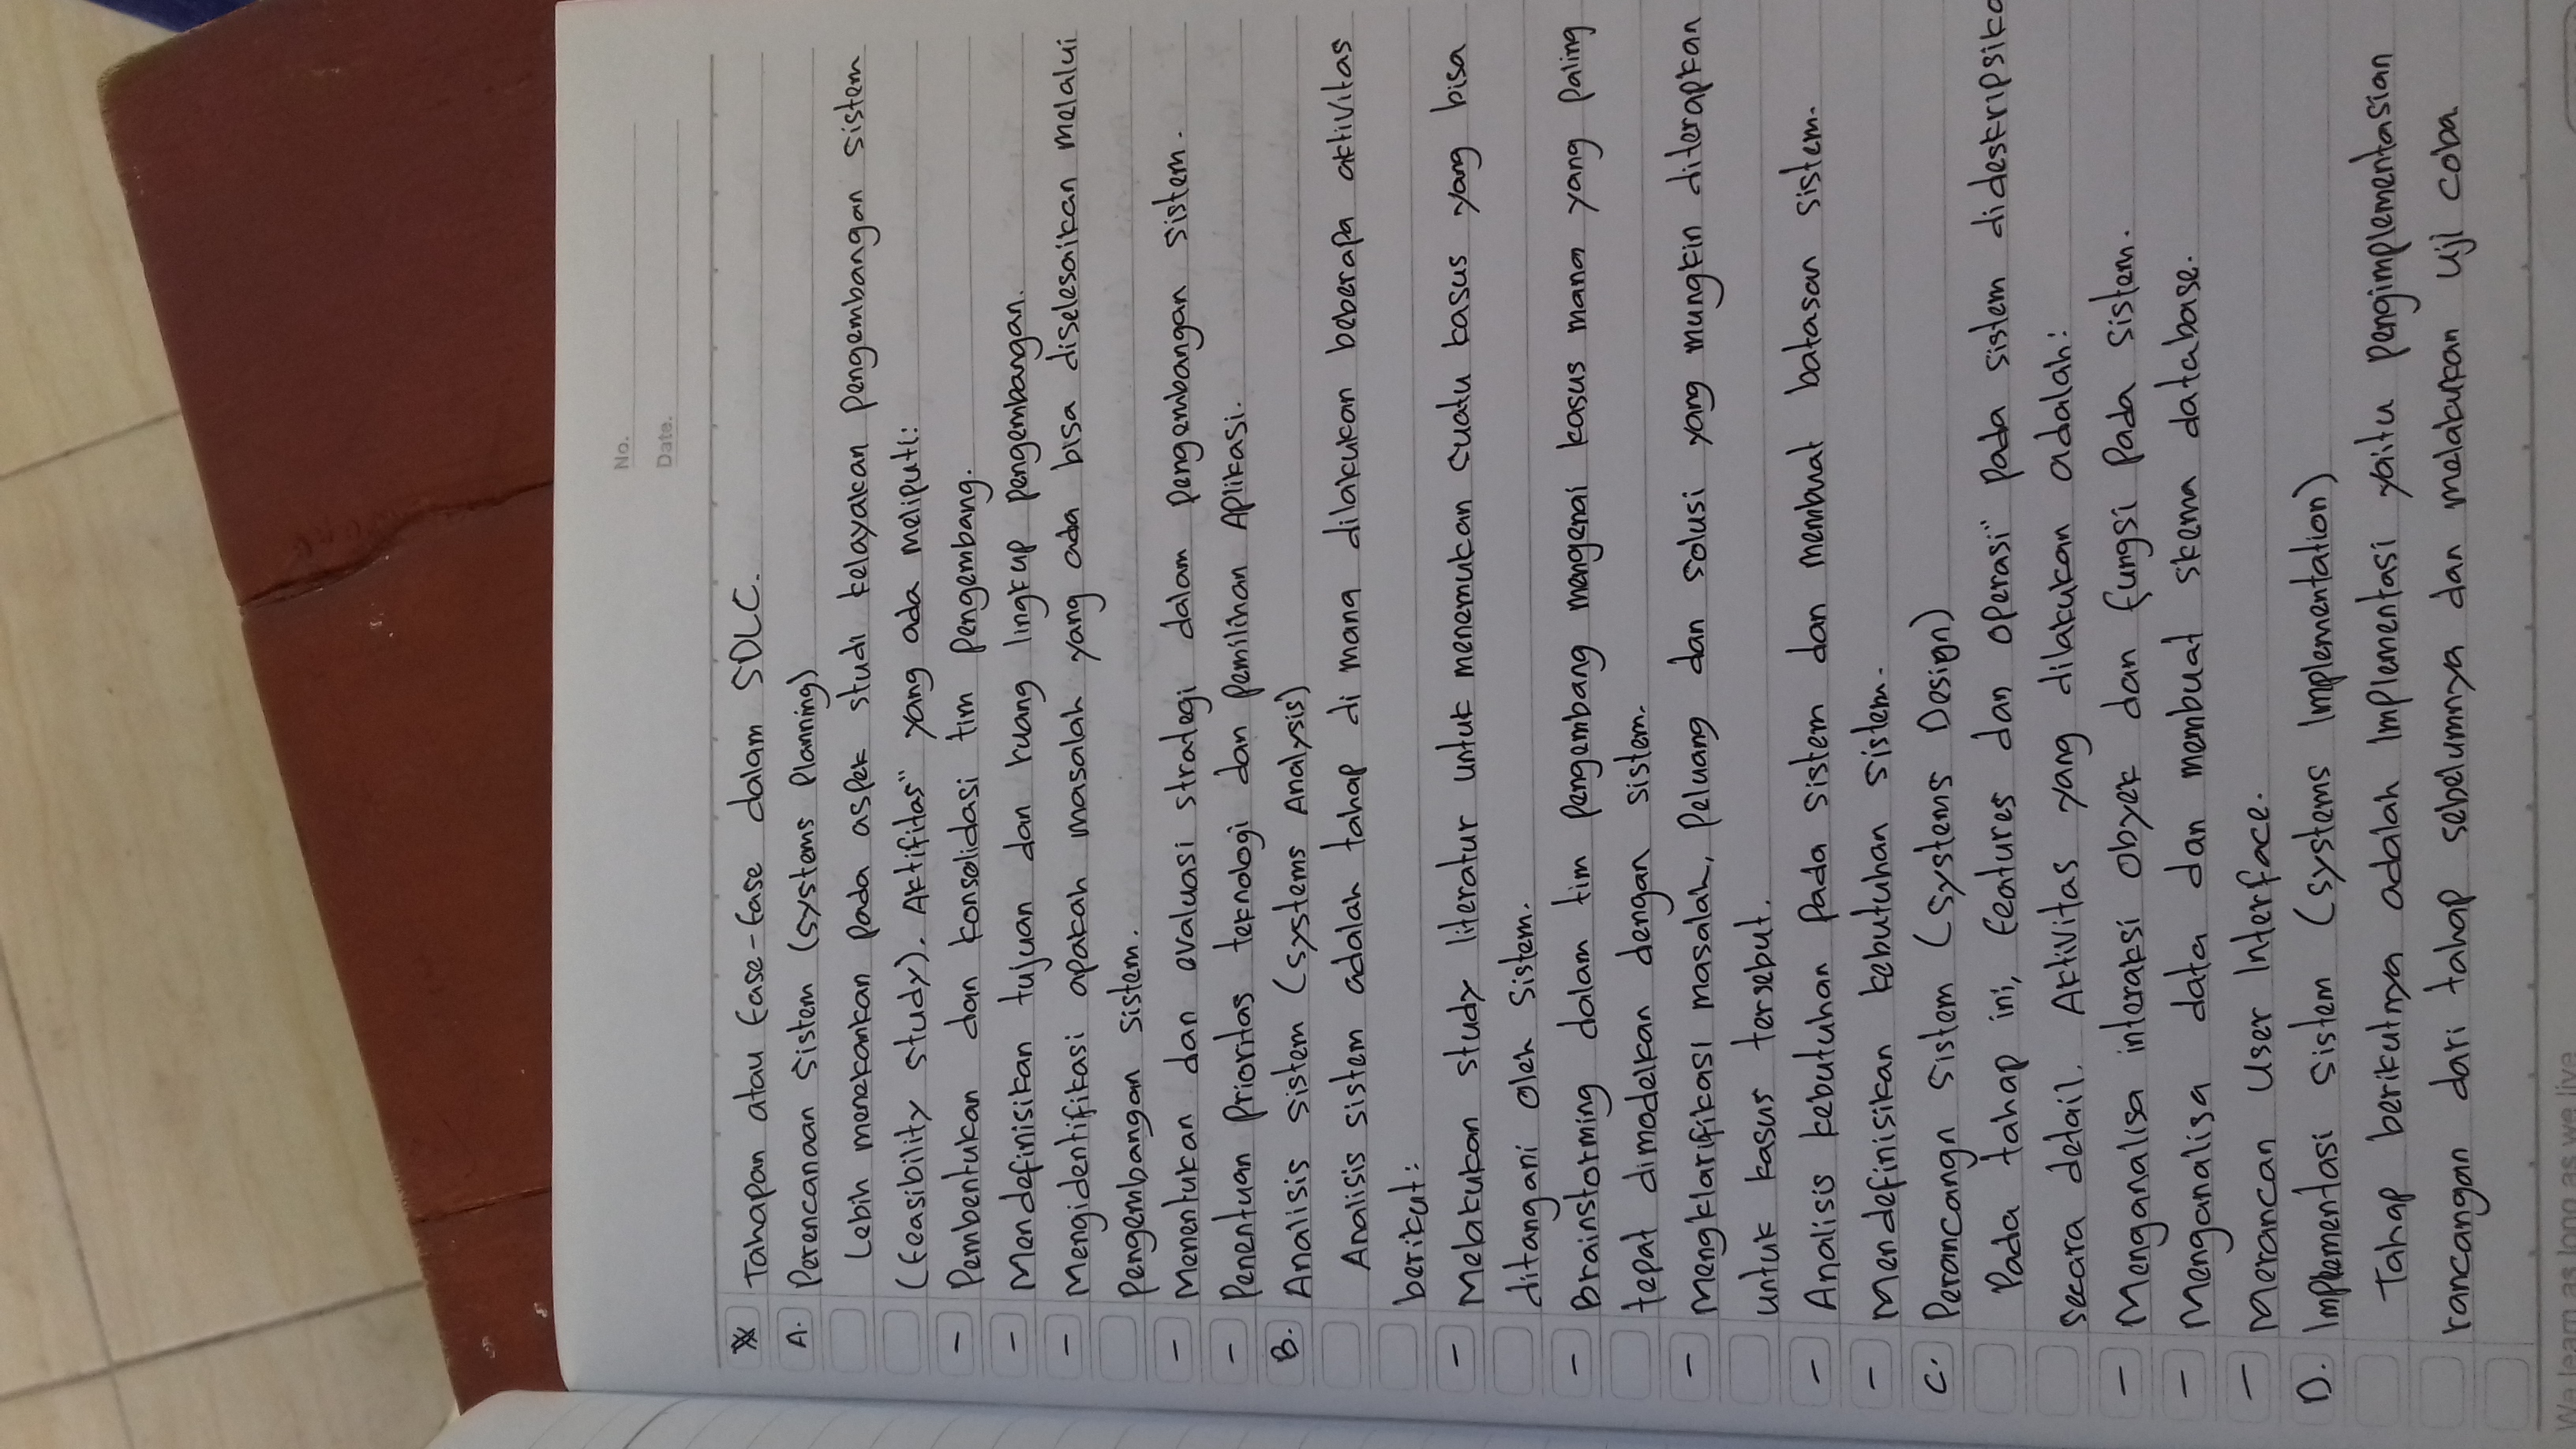 No.
Date.
※ Tahapan atau fase-fase dalam SDLC.
A. Perencanaan Sistem (Systems Planning)
Lebih menekankan pada aspek studi kelayakan pengembangan sistem
(feasibility study). Aktifitas" yang ada meliputi:
- Pembentukan dan konsolidasi tim pengembang.
- Mendefinisikan tujuan dan ruang lingkup pengembangan.
- Mengidentifikasi apakah masalah yang ada bisa diselesaikan melalui
pengembangan sistem.
- Menentukan dan evaluasi strategi dalam pengembangan sistem.
- Penentuan Prioritas teknologi dan pemilihan Aplikasi.
B. Analisis Sistem (Systems Analysis)
Analisis sistem adalah tahap di mana dilakukan beberapa aktivitas
berikut:
- Melakukan study literatur untuk menemukan suatu kasus yang bisa
ditangani oleh sistem.
- Brainstorming dalam tim pengembang mengenai kasus mana yang paling
tepat dimodelkan dengan sistem.
- Mengklarifikasi masalah, Peluang dan solusi yang mungkin diterapkan
untuk kasus tersebut.
- Analisis kebutuhan pada sistem dan membuat batasan sistem.
- Mendefinisikan kebutuhan sistem.
C. Perancangn Sistem (Systems Design)
Pada tahap ini, features dan operasi" pada sistem dideskripsika
secara detail. Aktivitas yang dilakukan adalah:
- Menganalisa interaksi obyek dan fungsi pada sistem.
- Menganalisa data dan membuat skema database.
- Merancan User Interface.
D. Implementasi Sistem (Systems Implementation)
Tahap berikutnya adalah Implementasi yaitu pengimplementasian
rancangan dari tahap sebelumnya dan melakukan uji coba
We learn as long as we live